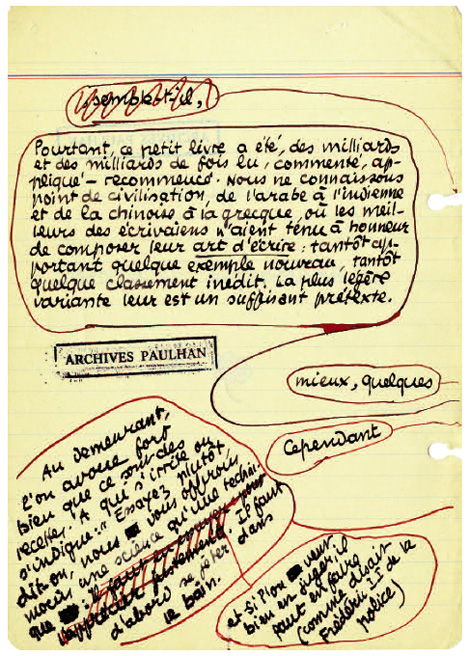 semble-t-il,
Pourtant, ce petit livre a été, des milliards
et des milliards de fois lu, commenté, ap-
pliqué – recommencé. Nous ne connaissons
point de civilisation, de l'arabe à l'indienne
et de la chinoise à la grecque, où les meil-
leurs des écrivains n'aient tenu à honneur
de composer leur art d'écrire : tantôt ap-
portant quelque exemple nouveau, tantôt
quelque classement inédit. La plus légère
variante leur est un suffisant prétexte.
ARCHIVES PAULHAN
mieux, quelques
Cependant
Au demeurant,
l'on avoue fort
bien que ce sont des
recettes. A qui s'irrite ou
s'indigne : " Essayez plutôt
dit-on, nous vous offrons
moins une science qu'une techni-
que
justement. Il faut
d'abord se jeter dans
le bain.
et si l'on veut
bien en juger, il
faut en faire
(comme disait
Frédéric II de la
police)